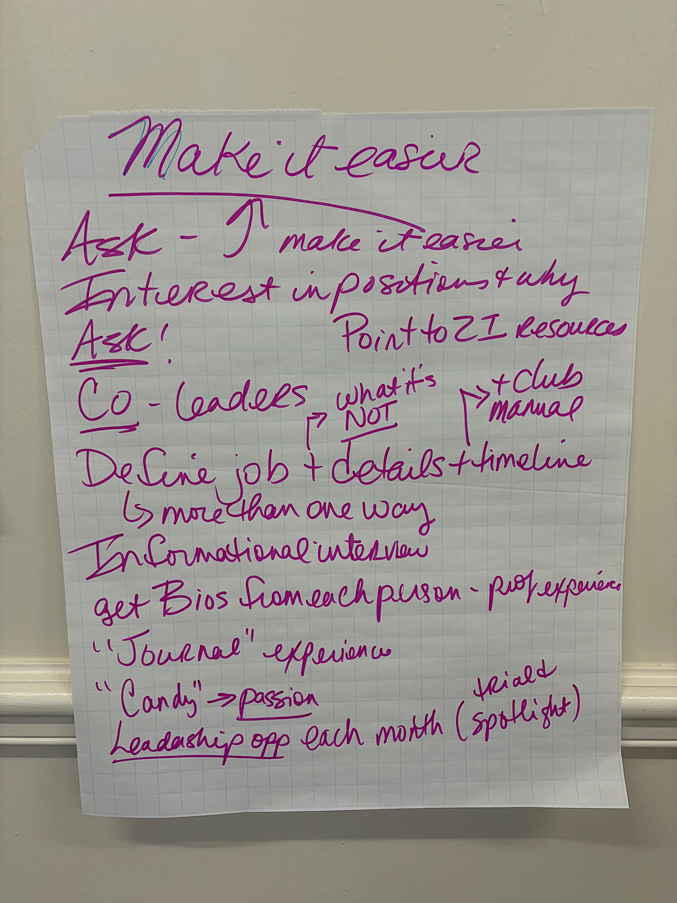 Make it easier
Ask - ↑ make it easier
Interest in positions + why
Ask!
Point to ZI resources
Co - leaders
what it's
NOT
+ club
manual
Define job + details + timeline
↳ more than one way
Informational interview
get Bios from each person - prof experience
"Journal" experience
"Candy" → passion
trial &
Leadership opp each month (spotlight)